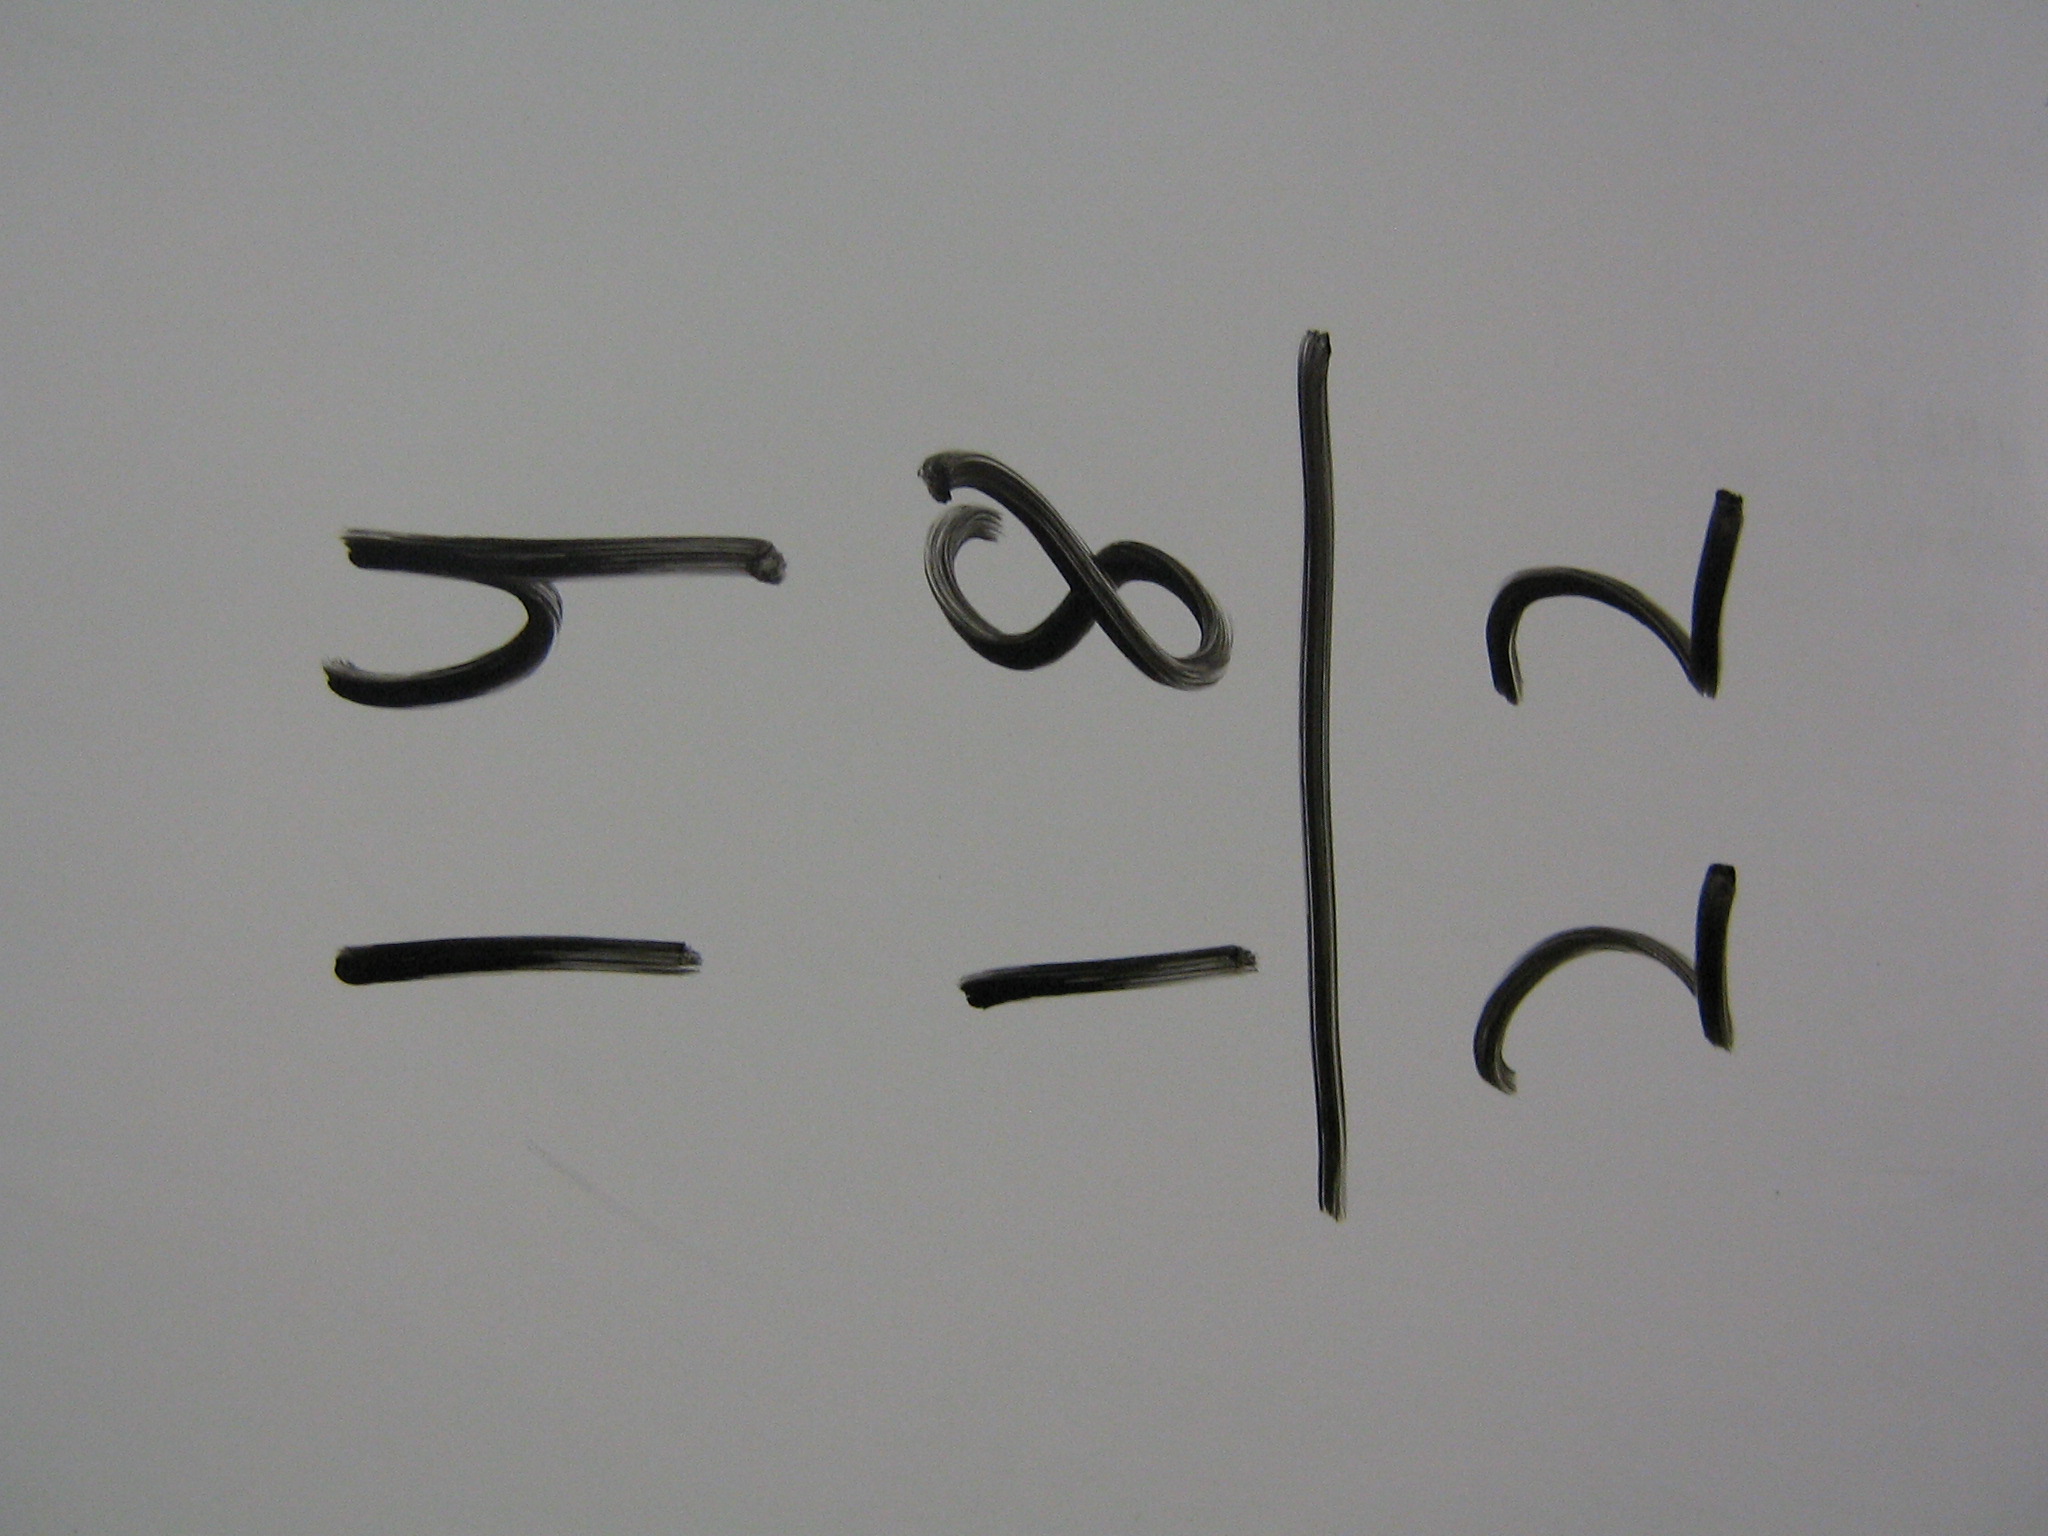 14
18
22